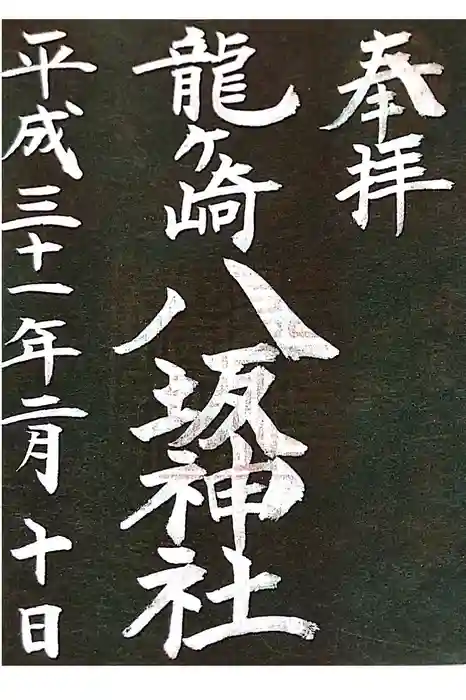 奉拝
龍ケ崎
八坂神社
平成三十一年二月十日